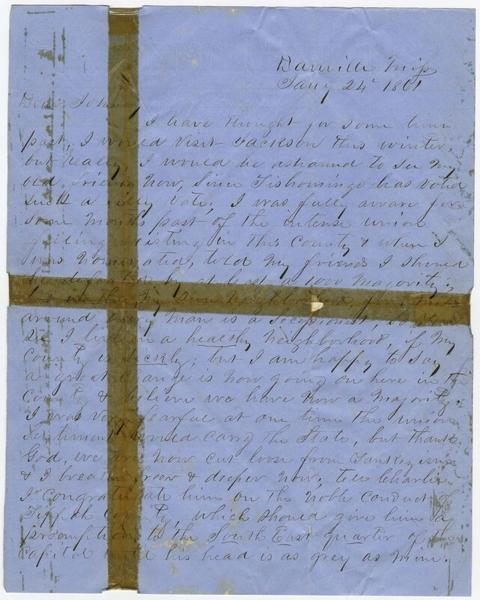 Danville Miss
Jany 24th 1861
Dear John,
I have thought for some time
past, I would visit Jackson this winter,
but really I would be ashamed to see my
old friends now, since Tishomingo has voted
such a silly vote, I was fully aware for
some months past of the intense union
feeling existing in this County & when I
was nominated, told my friends I should
be by at least a 1000 majority,
but in my own neighborhood, for miles
around every man is a secessionist, so
I live in a healthy neighborhood, if my
County is sickly; but I am happy to say
a great change is now going on here in the
County & believe we have now a majority.
I was very fearful at one time the union
sentiment would carry the State, but thank
God, we are now cut loose from Yankeeism
& I breathe freer & deeper now, tell Charlie
I congratulate him on the noble conduct of
Tippah County, which should give him a
presemption to the South East quarter of the
capitol until his head is as grey as mine.